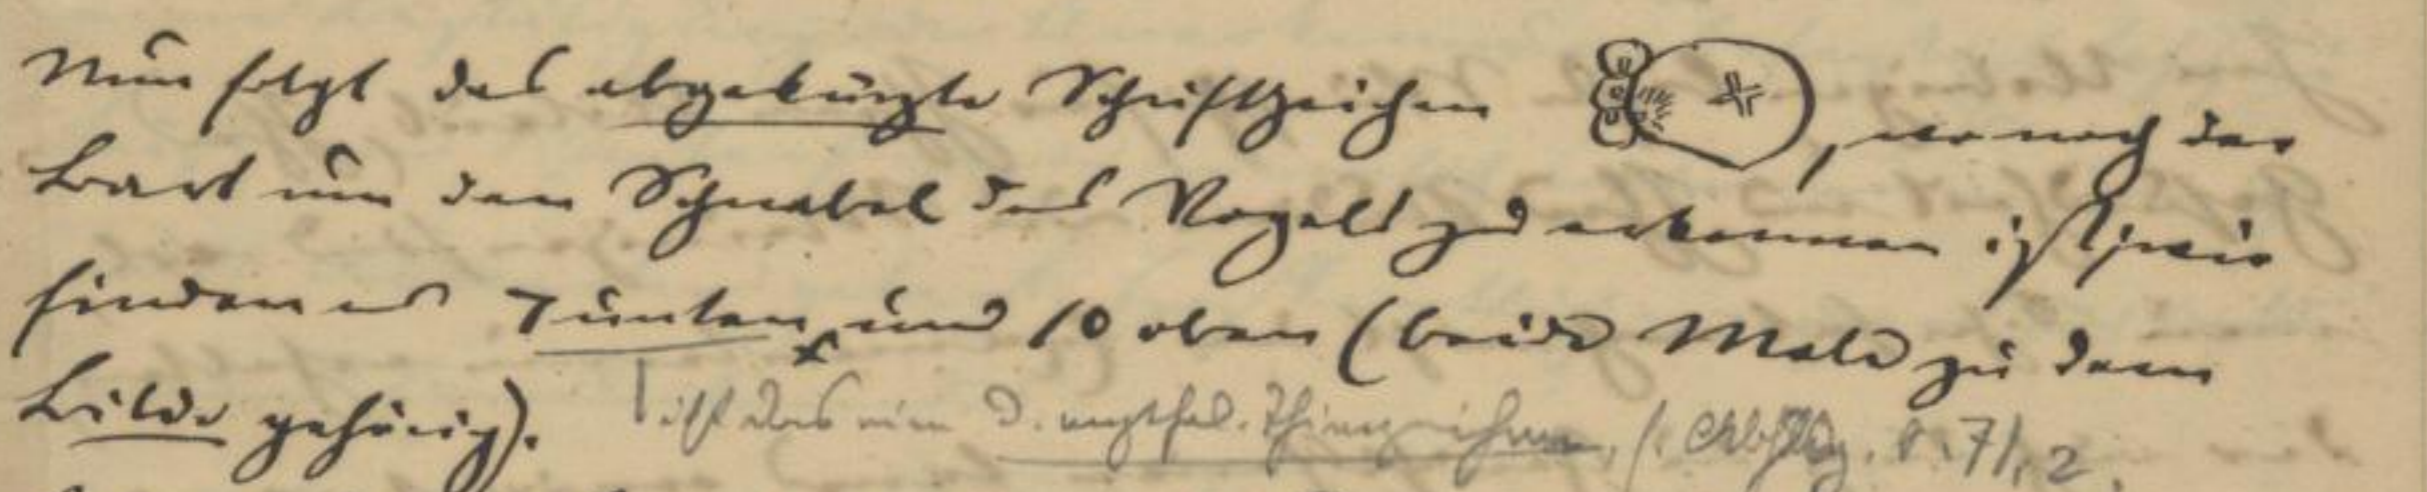 Nun folgt das abgekürzte Schriftzeichen , wo noch der
Bart um den Schnabel des Vogels zu erkennen ist; wir
finden es 7 unten und 10 oben (beide Male zu dem
Bilde gehörig). ist das ein d. mythol. 71, 2.